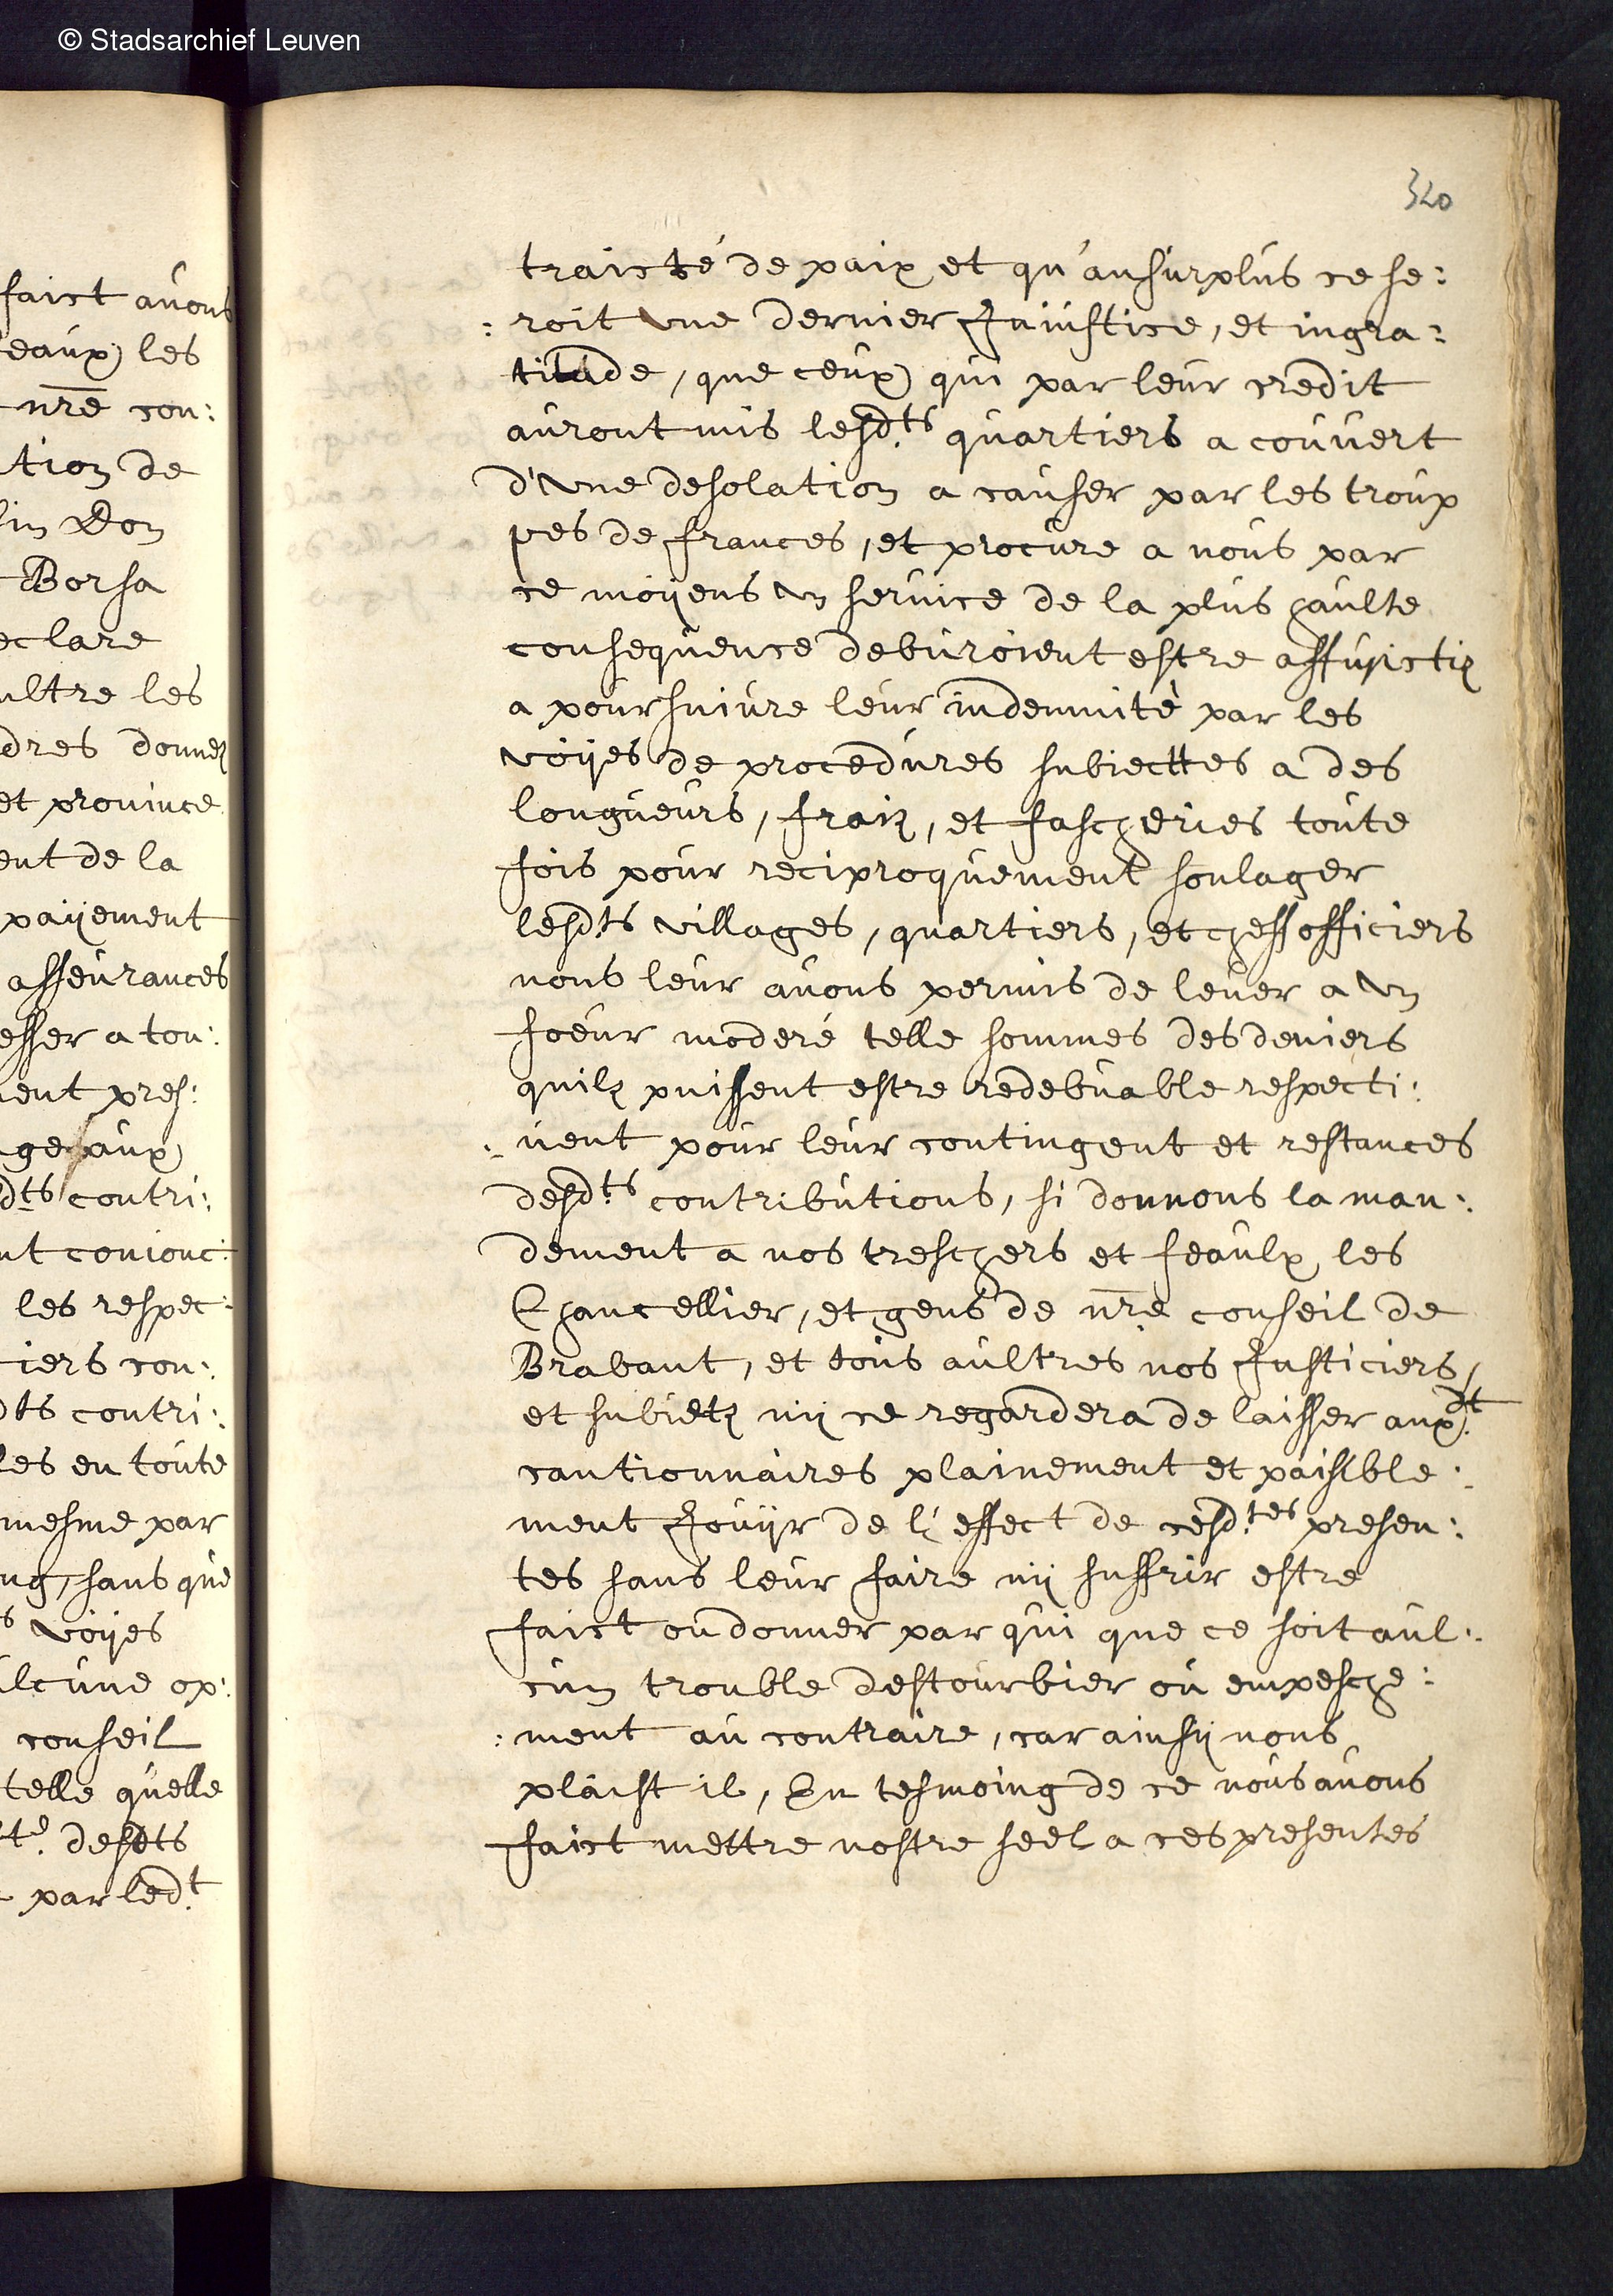 © Stadsarchief Leuven
faict auons
eaux les
nre con:
tion de
Don
Borsa
eclare
ultre les
dres donnez
et prouince
ent de la
payement
asseurances
esser a tou:
ent pres:
ge aux
dts contri:
nt conionc:
les respec:
iers con:
dts contri:
les en toute
mesme par
ng, sans que
voyes
lcune op:
conseil
telle quelle
desdts
par ledt
320
traicté de paix et qu'ausurplus ce se:
:roit une dernier Jniustice, et ingra:
titude, que ceux qui par leur credit
auront mis lesdts quartiers a couuert
d'une desolation a causer par les troup
pes de frances, et procure a nous par
ce moyens un seruice de la plus haulte
consequence deburoient estre assuiectiz
a poursuiure leur indemnité par les
voyes de procedures subiecttes a des
longueurs, fraiz, et fascheries toute
fois pour reciproquement soulager
lesdts villages, quartiers, et cheff officiers
nous leur auons permis de leuer a un
foeur moderé telle sommes des deniers
quilz puissent estre redebuable respecti:
:uent pour leur contingent et restances
desdts contributions, si donnons la man:
dement a nos treschers et feaulx les
Chancellier, et gens de nre conseil de
Brabant, et tous aultres nos Justiciers,
et subietz ny ce regardera de laisser auxdt
cautionnaires plainement et paisible:
ment Jouyr de l'effect de cesdtes presen:
tes sans leur faire ny suffrir estre
faict ou donner par qui que ce soit aul:
cun trouble destourbier ou empesche:
:ment au contraire, car ainsy nous
plaist il, En tesmoing de ce nous auons
faict mettre nostre seel a ces presentes